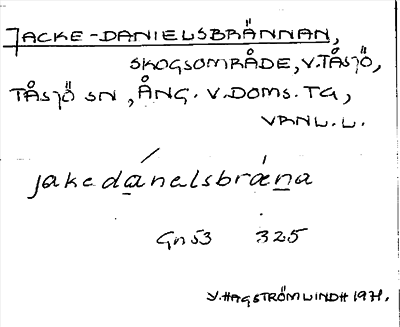 JACKE-DANIELSBRÄNNAN,
SKOGSOMRÅDE, V. TÅSJÖ,
TÅSJÖ SN, ÅNG. V. DOMS. TG,
VANL. U.
jakedánelsbrǽna
Gn 53 325
V. HAGSTRÖM LINDH 1971.